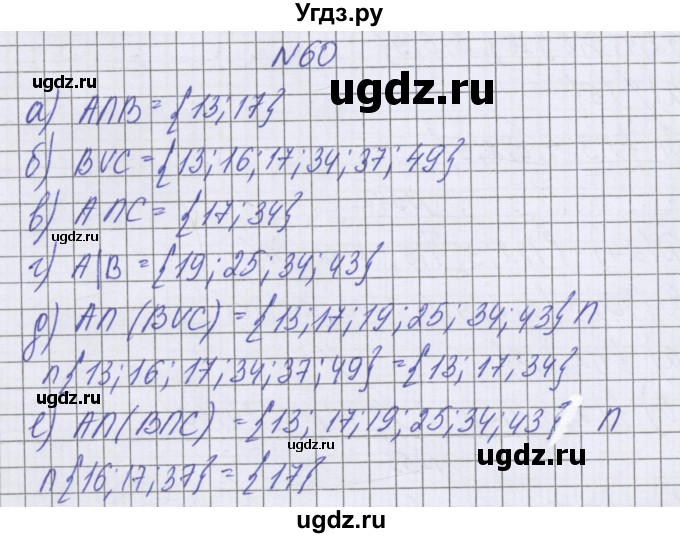 Угдз.ру
№60
ugdz.ru
ugdz.ru
а) A∩B = {13; 17}
б) B∪C = {13; 16; 17; 34; 37; 49}
ugdz.ru
в) A∩C = {17; 34}
ugdz.ru
г) A|B = {19; 25; 34; 43}
д) A∩(B∪C) = {13; 17; 19; 25; 34; 43} ∩
∩{13; 16; 17; 34; 37; 49} = {13; 17; 34}
ugdz.ru
е) A∩(B∩C) = {13; 17; 19; 25; 34; 43} ∩
ugdz.ru
ugdz.ru
∩{16; 17; 37} = {17}
ugdz.ru
ugdz.ru